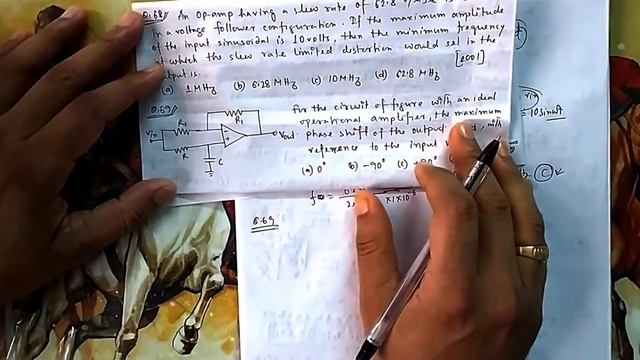 Q.68// An Op-amp having a slew rate of 62.8 V/
in a voltage follower configuration. If the maximum amplitude
of the input sinusoidal is 10 volts, then the minimum frequency
at which the slew rate limited distortion would set in the
output is. [2001]
(a) 1 MHz (b) 6.28 MHz (c) 10 MHz (d) 62.8 MHz
Q.69// For the circuit of figure with an ideal
operational amplifier, the maximum
phase shift of the output with
reference to the input
(a) 0° (b) -90° (c)
R1
R1
R
C
Vin
Vout
Vin
= 10 sinωt
C
×1×10-6
Q.69